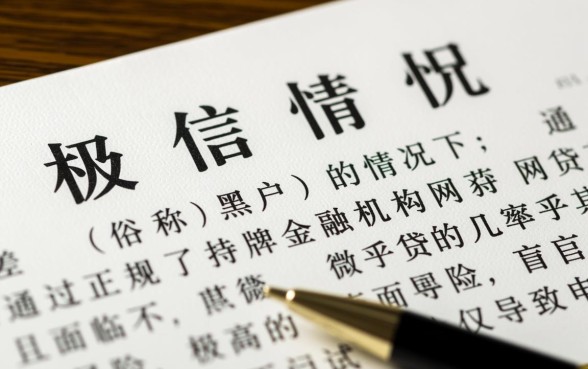 极信情况
差 （俗称）黑户）的情况下； 通
通过正规了持牌金融机构网 网贷
且面临不， 微乎贷的几率乎其
险， 极高的 面 险，盲盲
试 仅导致电